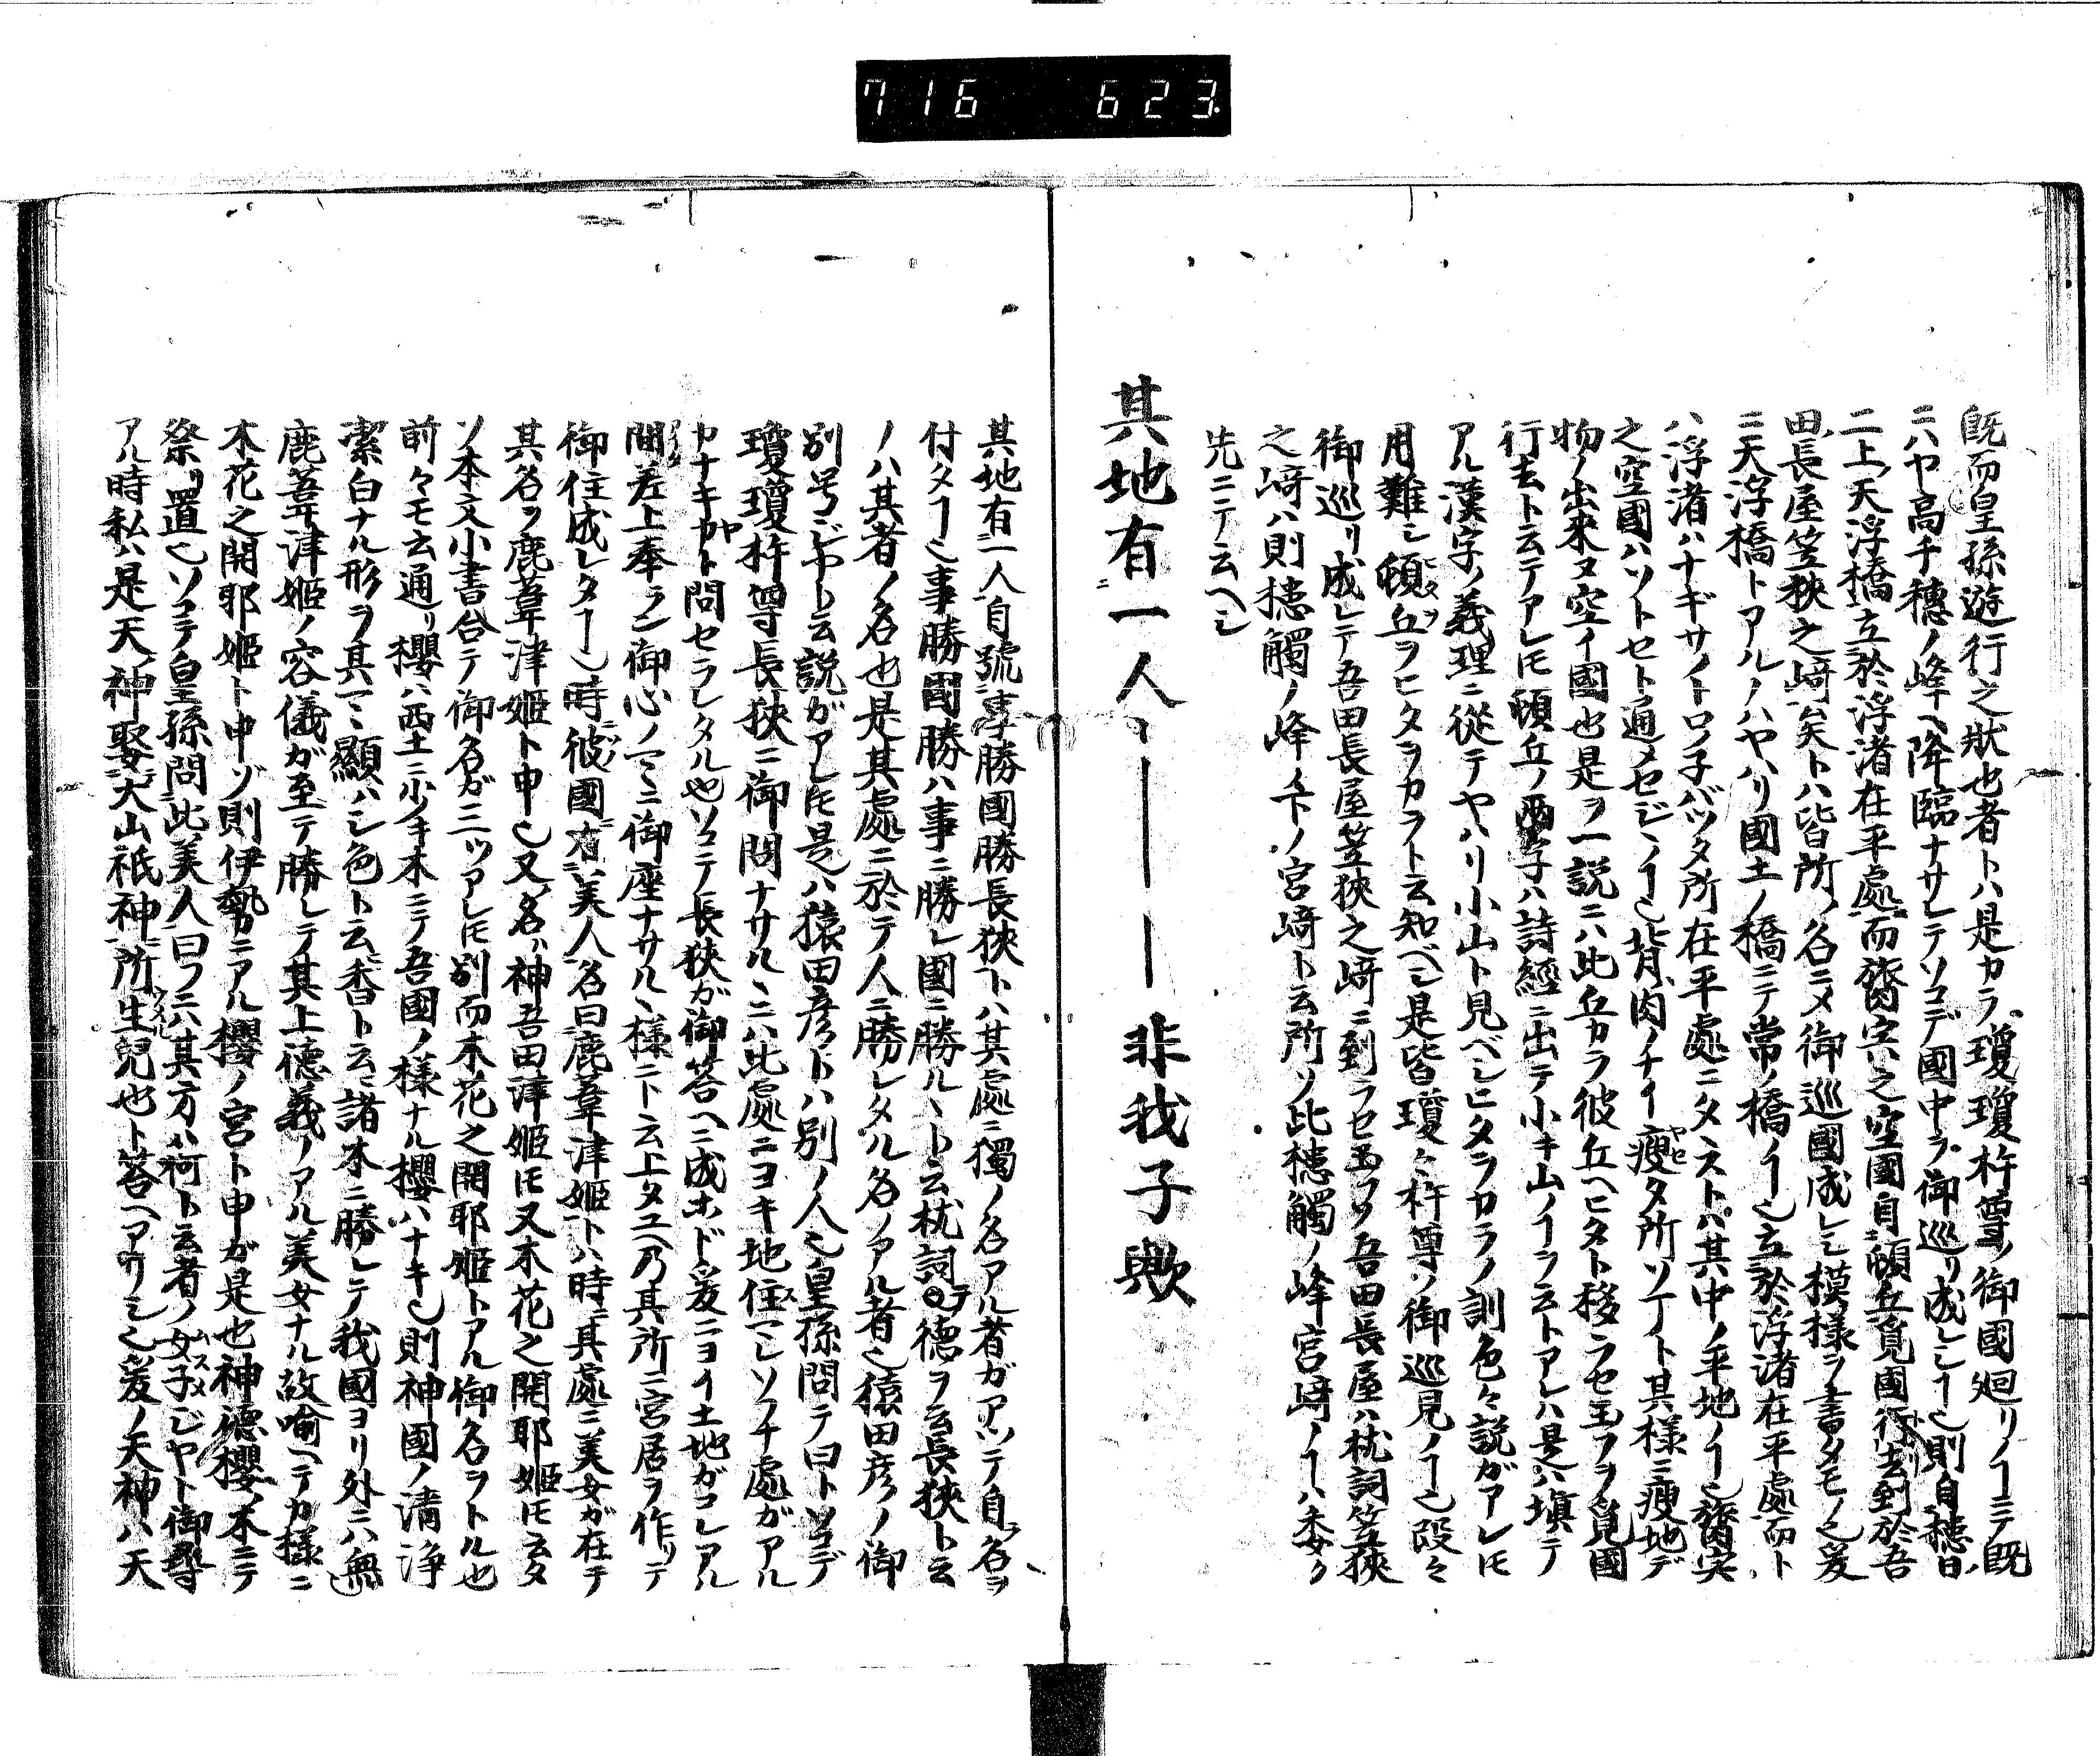 716 623
既而皇孫遊行之狀也者トハ是カラ瓊瓊杵尊ノ御國廻リノ𬼀テ既
ニハヤ高千穗ノ峰ヘ降臨ナサレテソコデ國中ヲ御巡リ成レシヿ也則自槵日
二上天浮橋立於浮渚在平處而膂宍之空國自頓丘覓國行去到於吾
田長屋笠狹之﨑矣トハ皆所ノ名ニメ御巡國成レシ模様ヲ書タモノ也爰
ニ天浮橋トアルノハヤハリ國土ノ橋ニテ常ノ橋ノヿ也立於浮渚在平處而ト
ハ浮渚ハナギサノトロツ子バツタ所在平處ニタヽストハ其中ノ平地ノヿ也膂宍
之空國ハソトセト通メセジヽノヿ也背肉ノナイ瘦タ所ソヿト其様ニ瘦地デ
物ノ出来ヌ空イ國也是ヲ一説ニハ此丘カラ彼丘ヘヒタト移ラセ玉フヲ覓國
行去ト云テアレ𪜈頓丘ノ两字ハ詩經ニ出テ小キ山ノヿヲ云トアレハ是ハ塡テ
アル漢字ノ義理ニ從テヤハリ小山ト見ベシヒタヲカラノ訓色々説ガアレ𪜈
用難シ頓丘ヲヒタヲカラト云知ベシ是皆瓊々杵尊ノ御巡見ノヿ也段々
御巡リ成レテ吾田長屋笠狹之﨑ニ到ラセ玉フソ吾田長屋ハ枕詞笠狹
之﨑ハ則槵觸ノ峰ノ下ノ宮﨑ト云所ソ此槵觸ノ峰宮﨑ノヿハ委ク
先ニテ云ヘシ
其地有一人ーーーー非我子歟
其地有一人自號事勝國勝長狹トハ其處ニ獨ノ名アル者ガアツテ自名ヲ
付タヿ也事勝國勝ハ事ニ勝レ國ニ勝ルヽト云枕詞ヲ德ヲ云長狹ト云
ノハ其者ノ名也是其處ニ於テ人ニ勝レタル名ノアル者也猿田彦ノ御
別号ジヤト云説ガアレ𪜈是ハ猿田彦トハ別ノ人也皇孫問テ曰トソコデ
瓊瓊杵尊長狹ニ御問ナサルヽニハ此處ニヨキ地住マレソフナ處ガアル
カナキカト問セラレタル也ソコニテ長狹ガ御答ヘニ成ホド爰ニヨイ土地ガコレアル
間差上奉ラン御心ノマヽニ御座ナサルヽ様ニト云上タユヘ乃其所ニ宮居ヲ作リテ
御住成レタヿ也時彼國有美人名曰鹿葦津姬トハ時ニ其處ニ美女ガ在テ
其名ヲ鹿葦津姬ト申也又ノ名ハ神吾田津姬𪜈又木花之開耶姬𪜈云タ
ソ本文小書合テ御名ガ三ツアレ𪜈別而木花之開耶姬トアル御名ヲトル也
前々モ云通リ櫻ハ西土ニ少ノキ木ニテ吾國ノ様ナル櫻ハナキ也則神國ノ清浄
潔白ナル形ヲ其マヽ顯ハシ色ト云香ト云諸木ニ勝レテ我國ヨリ外ニハ無也
鹿葦津姬ノ容儀ガ至テ勝レテ其上德義ノアル美女ナル故喩ヘテカ様ニ
木花之開耶姬ト申ゾ則伊勢ニアル櫻ノ宮ト申ガ是也神德櫻ノ木ニテ
祭リ置也ソコデ皇孫問此美人曰フニハ其方ハ何ト云者ノ女子ジヤト御尋
アル時私ハ是天神娶大山祇神所生兒也ト答ヘアリシ也爰ノ天神ハ天